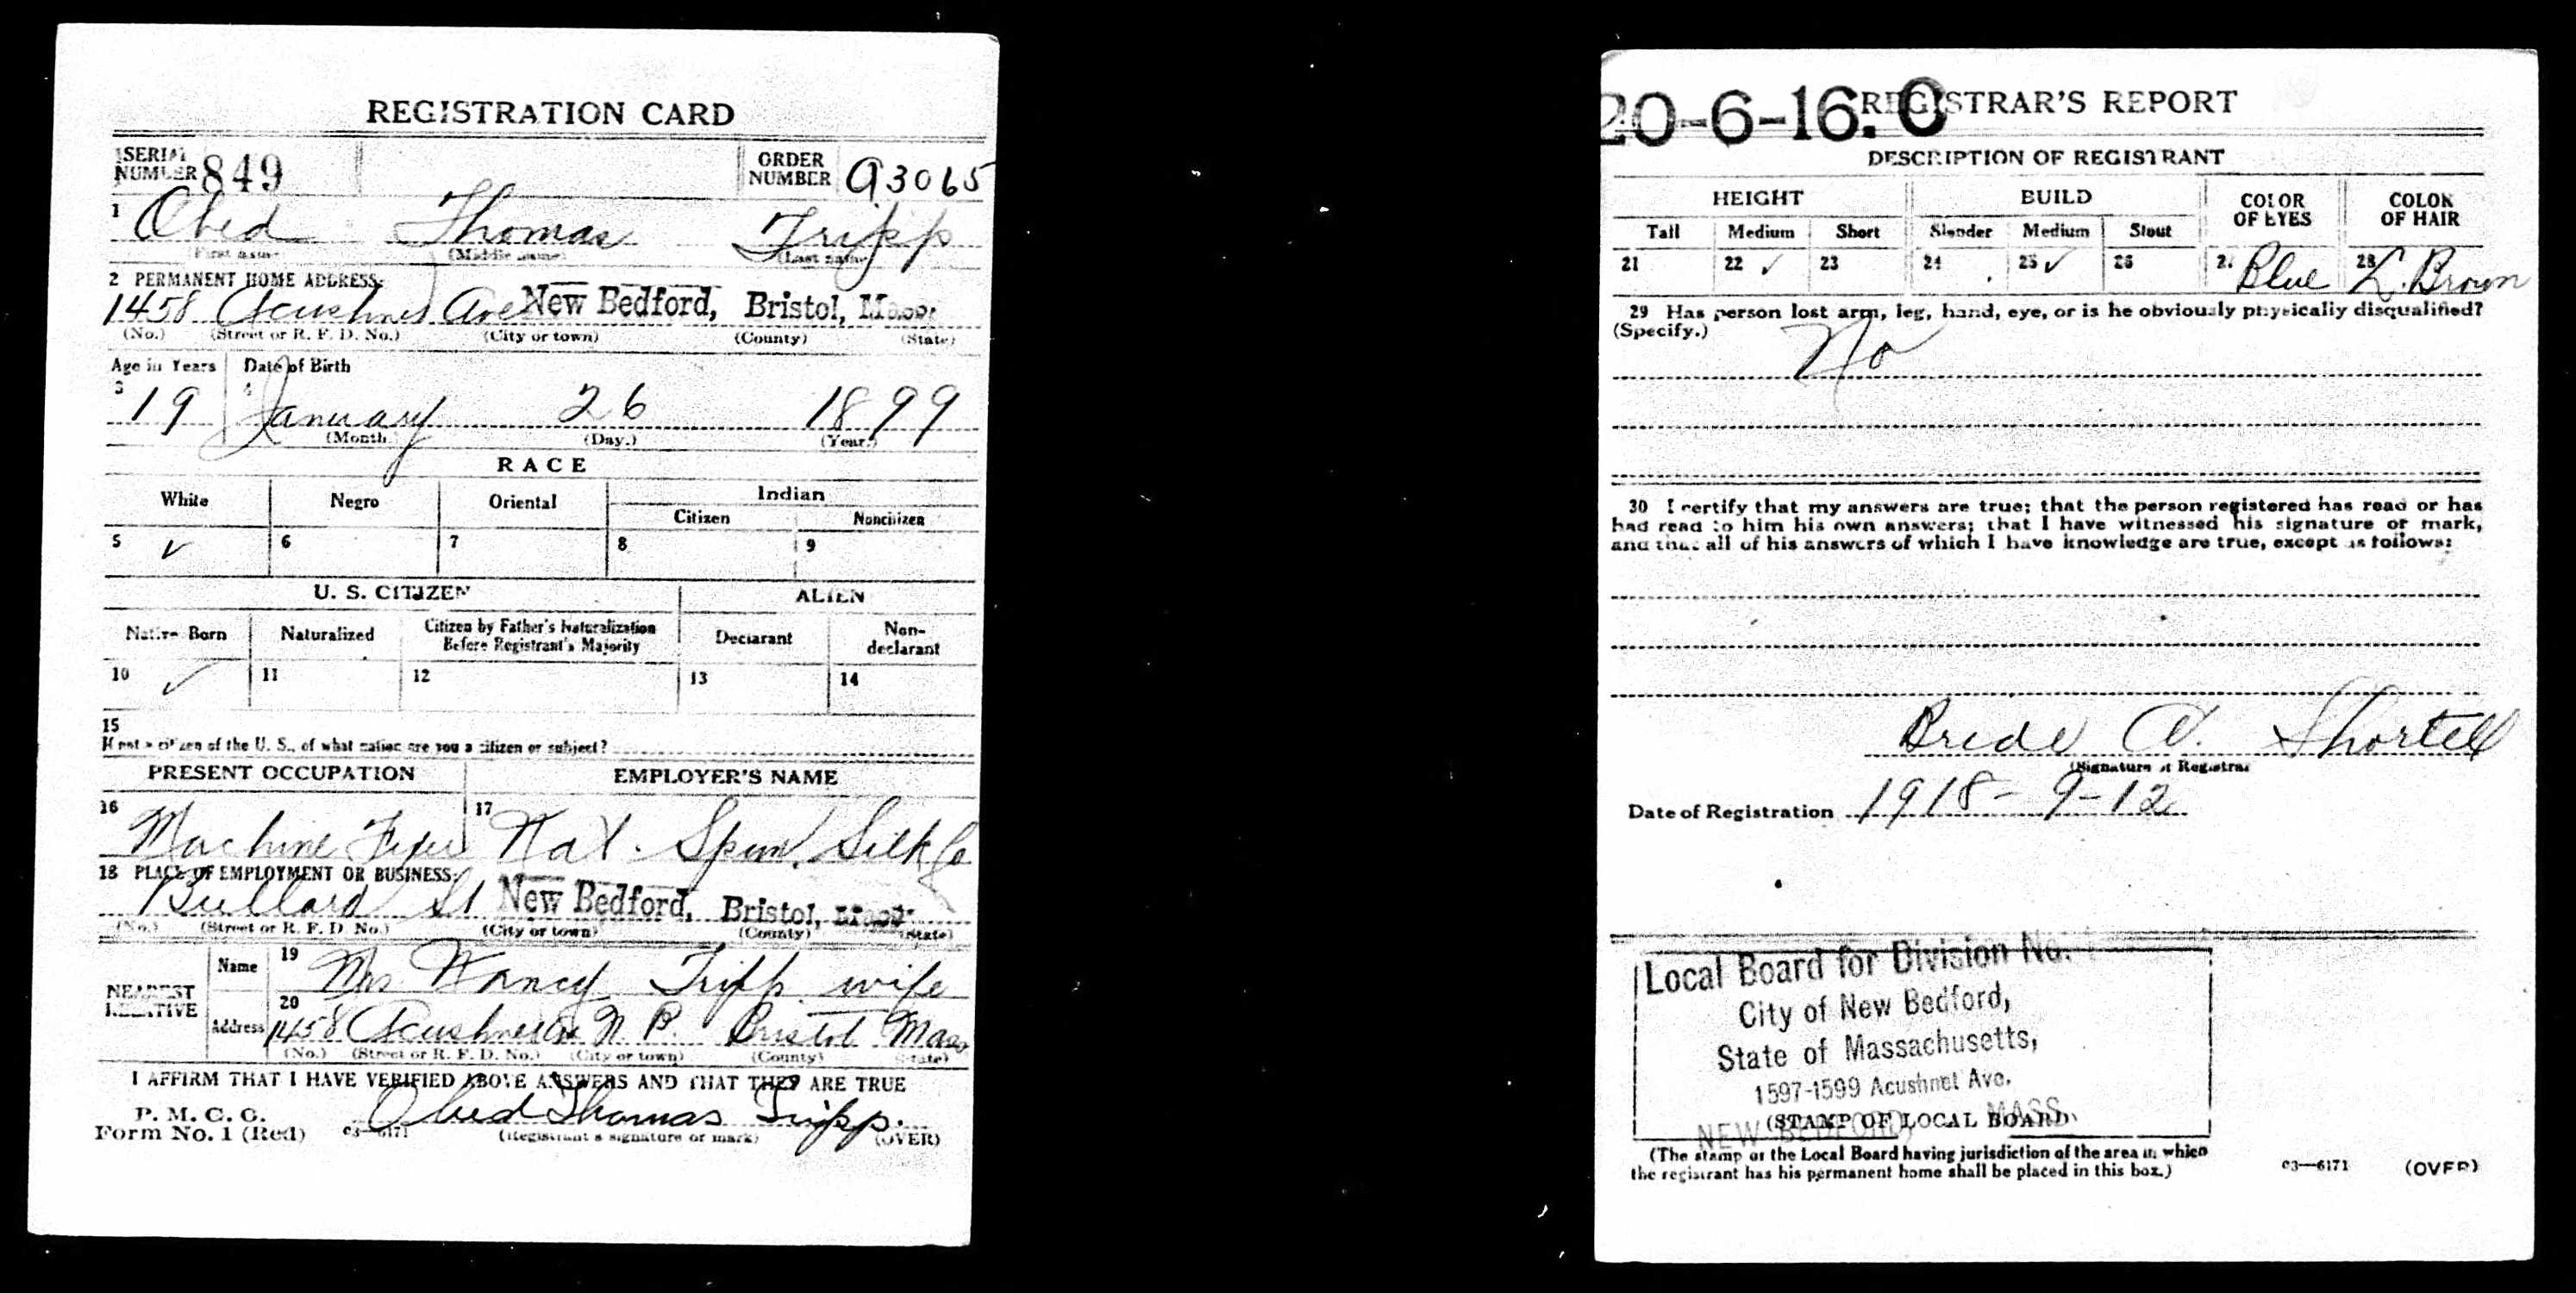 REGISTRATION CARD
SERIAL NUMBER 849
ORDER NUMBER A3065
1 Obed Thomas Tripp
(First name) (Middle name) (Last name)
2 PERMANENT HOME ADDRESS:
1458 Acushnet Ave New Bedford, Bristol, Mass.
(No.) (Street or R. F. D. No.) (City or town) (County) (State)
Age in Years Date of Birth
3 19 4 January 26 1899
(Month.) (Day.) (Year.)
RACE
White Negro Oriental Indian
Citizen Noncitizen
5 ✓ 6 7 8 9
U. S. CITIZEN ALIEN
Native Born Naturalized Citizen by Father's Naturalization Before Registrant's Majority Declarant Non-declarant
10 ✓ 11 12 13 14
15
If not a citizen of the U. S., of what nation are you a citizen or subject?
PRESENT OCCUPATION EMPLOYER'S NAME
16 Machine Fixer 17 Nat. Spun Silk Co
18 PLACE OF EMPLOYMENT OR BUSINESS:
Bullard St New Bedford, Bristol, Mass.
(No.) (Street or R. F. D. No.) (City or town) (County) (State)
NEAREST RELATIVE
Name 19 Mrs Nancy Tripp wife
Address 20 1458 Acushnet Av N. B. Bristol Mass
(No.) (Street or R. F. D. No.) (City or town) (County) (State)
I AFFIRM THAT I HAVE VERIFIED ABOVE ANSWERS AND THAT THEY ARE TRUE
P. M. G. O.
Form No. 1 (Red) 03—6171 Obed Thomas Tripp.
(Registrant's signature or mark) (OVER)
20-6-16. C
REGISTRAR'S REPORT
DESCRIPTION OF REGISTRANT
HEIGHT BUILD COLOR OF EYES COLOR OF HAIR
Tall Medium Short Slender Medium Stout
21 22 ✓ 23 24 25 ✓ 26 27 Blue 28 L. Brown
29 Has person lost arm, leg, hand, eye, or is he obviously physically disqualified?
(Specify.)
No
30 I certify that my answers are true; that the person registered has read or has
had read to him his own answers; that I have witnessed his signature or mark,
and that all of his answers of which I have knowledge are true, except as follows:
Bride A. Shortell
(Signature of Registrar)
Date of Registration 1918-9-12
Local Board for Division No.
City of New Bedford,
State of Massachusetts,
1597-1599 Acushnet Ave.
(STAMP OF LOCAL BOARD)
NEW BEDFORD, MASS.
(The stamp of the Local Board having jurisdiction of the area in which
the registrant has his permanent home shall be placed in this box.)
03—6171 (OVER)